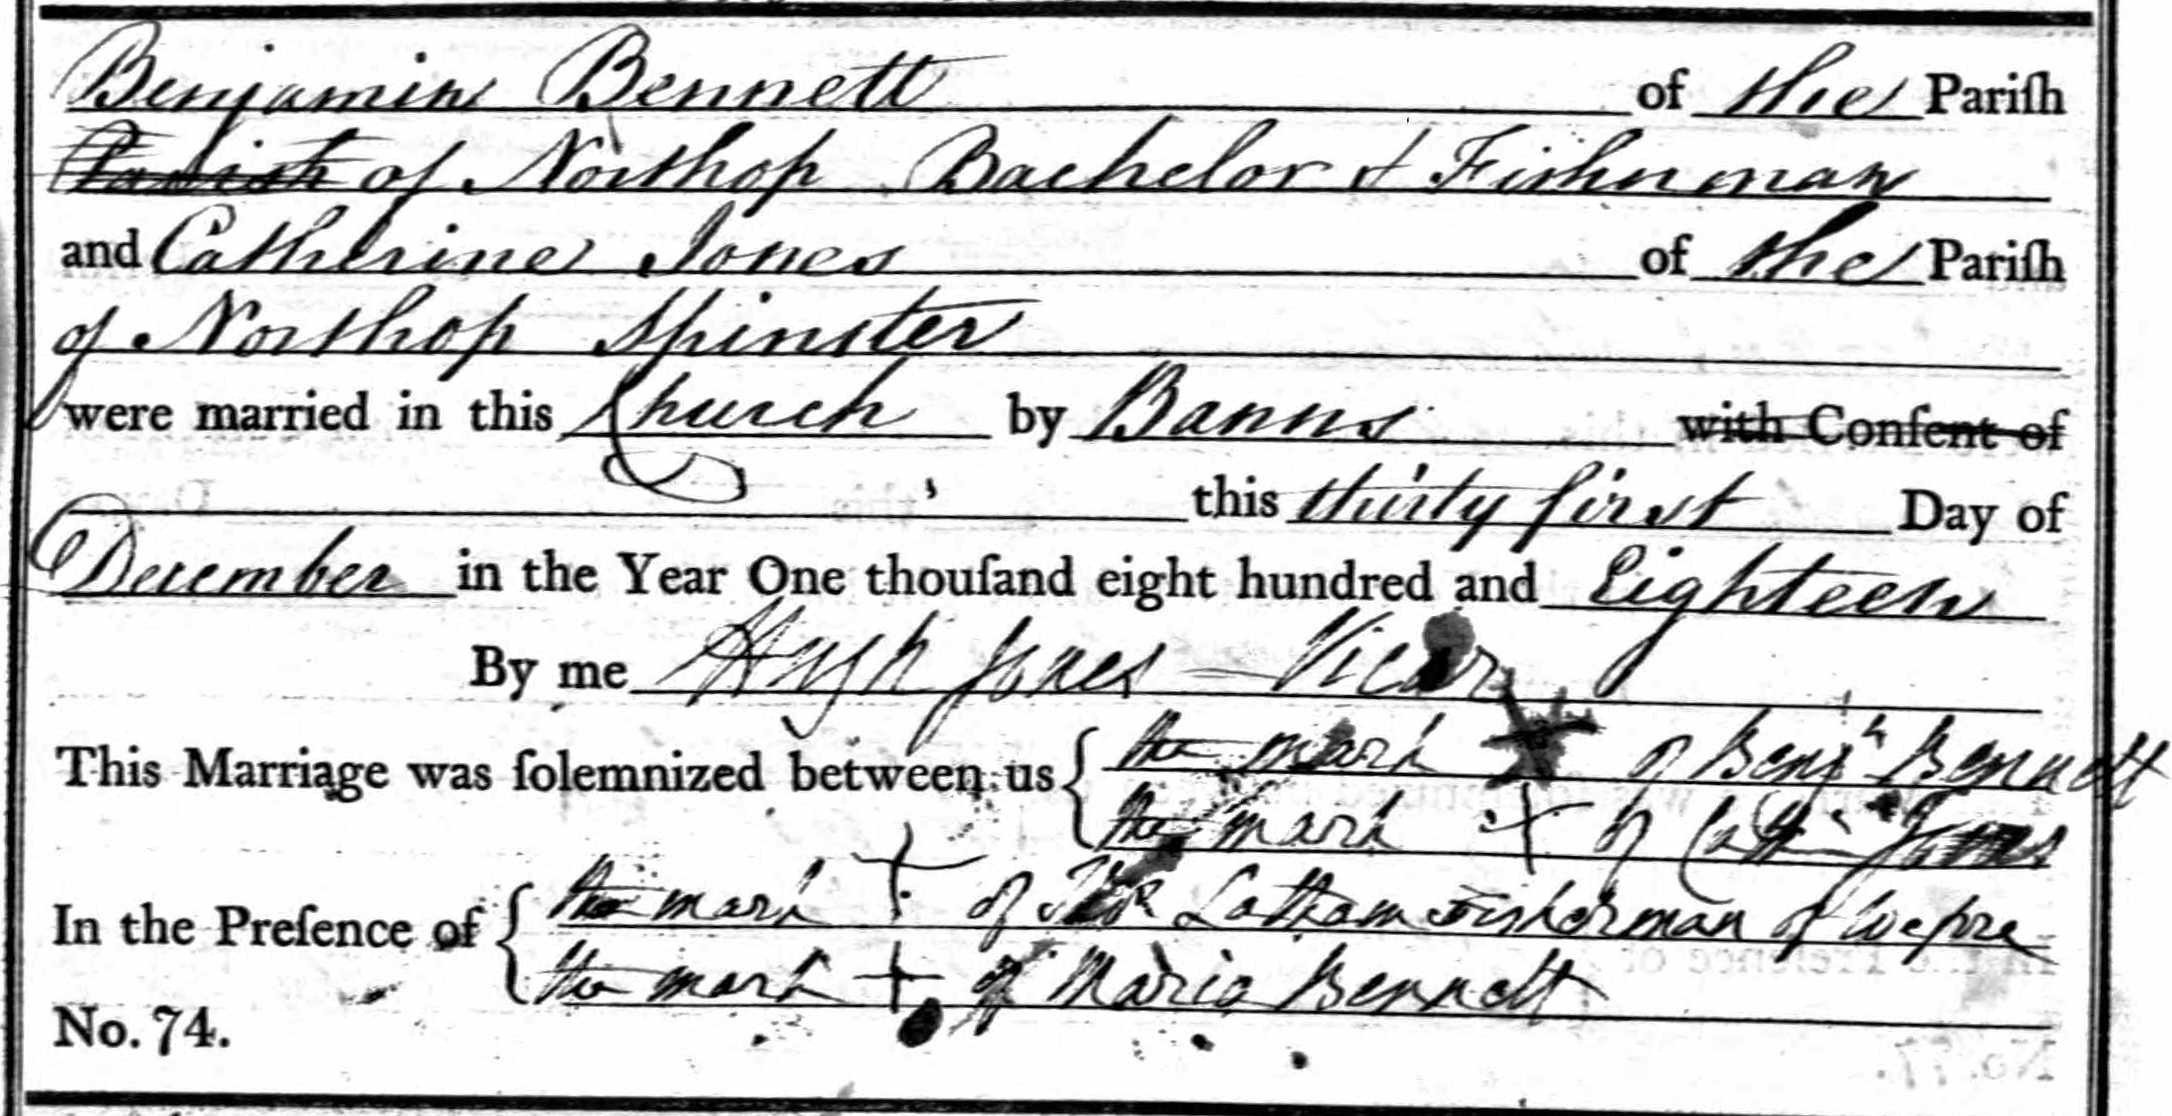 Benjamin Bennett of the Pariſh
Parish of Northop Bachelor & Fisherman
and Catherine Jones of the Pariſh
of Northop Spinster
were married in this Church by Banns with Conſent of
this thirty first Day of
December in the Year One thouſand eight hundred and Eighteen
By me Hugh Jones - Vicar
This Marriage was ſolemnized between us { the mark + of Benjn Bennett
the mark + of Cath: Jones
In the Preſence of { the mark + of Latham Fisherman of Wepre
the mark + of Maria Bennett
No. 74.